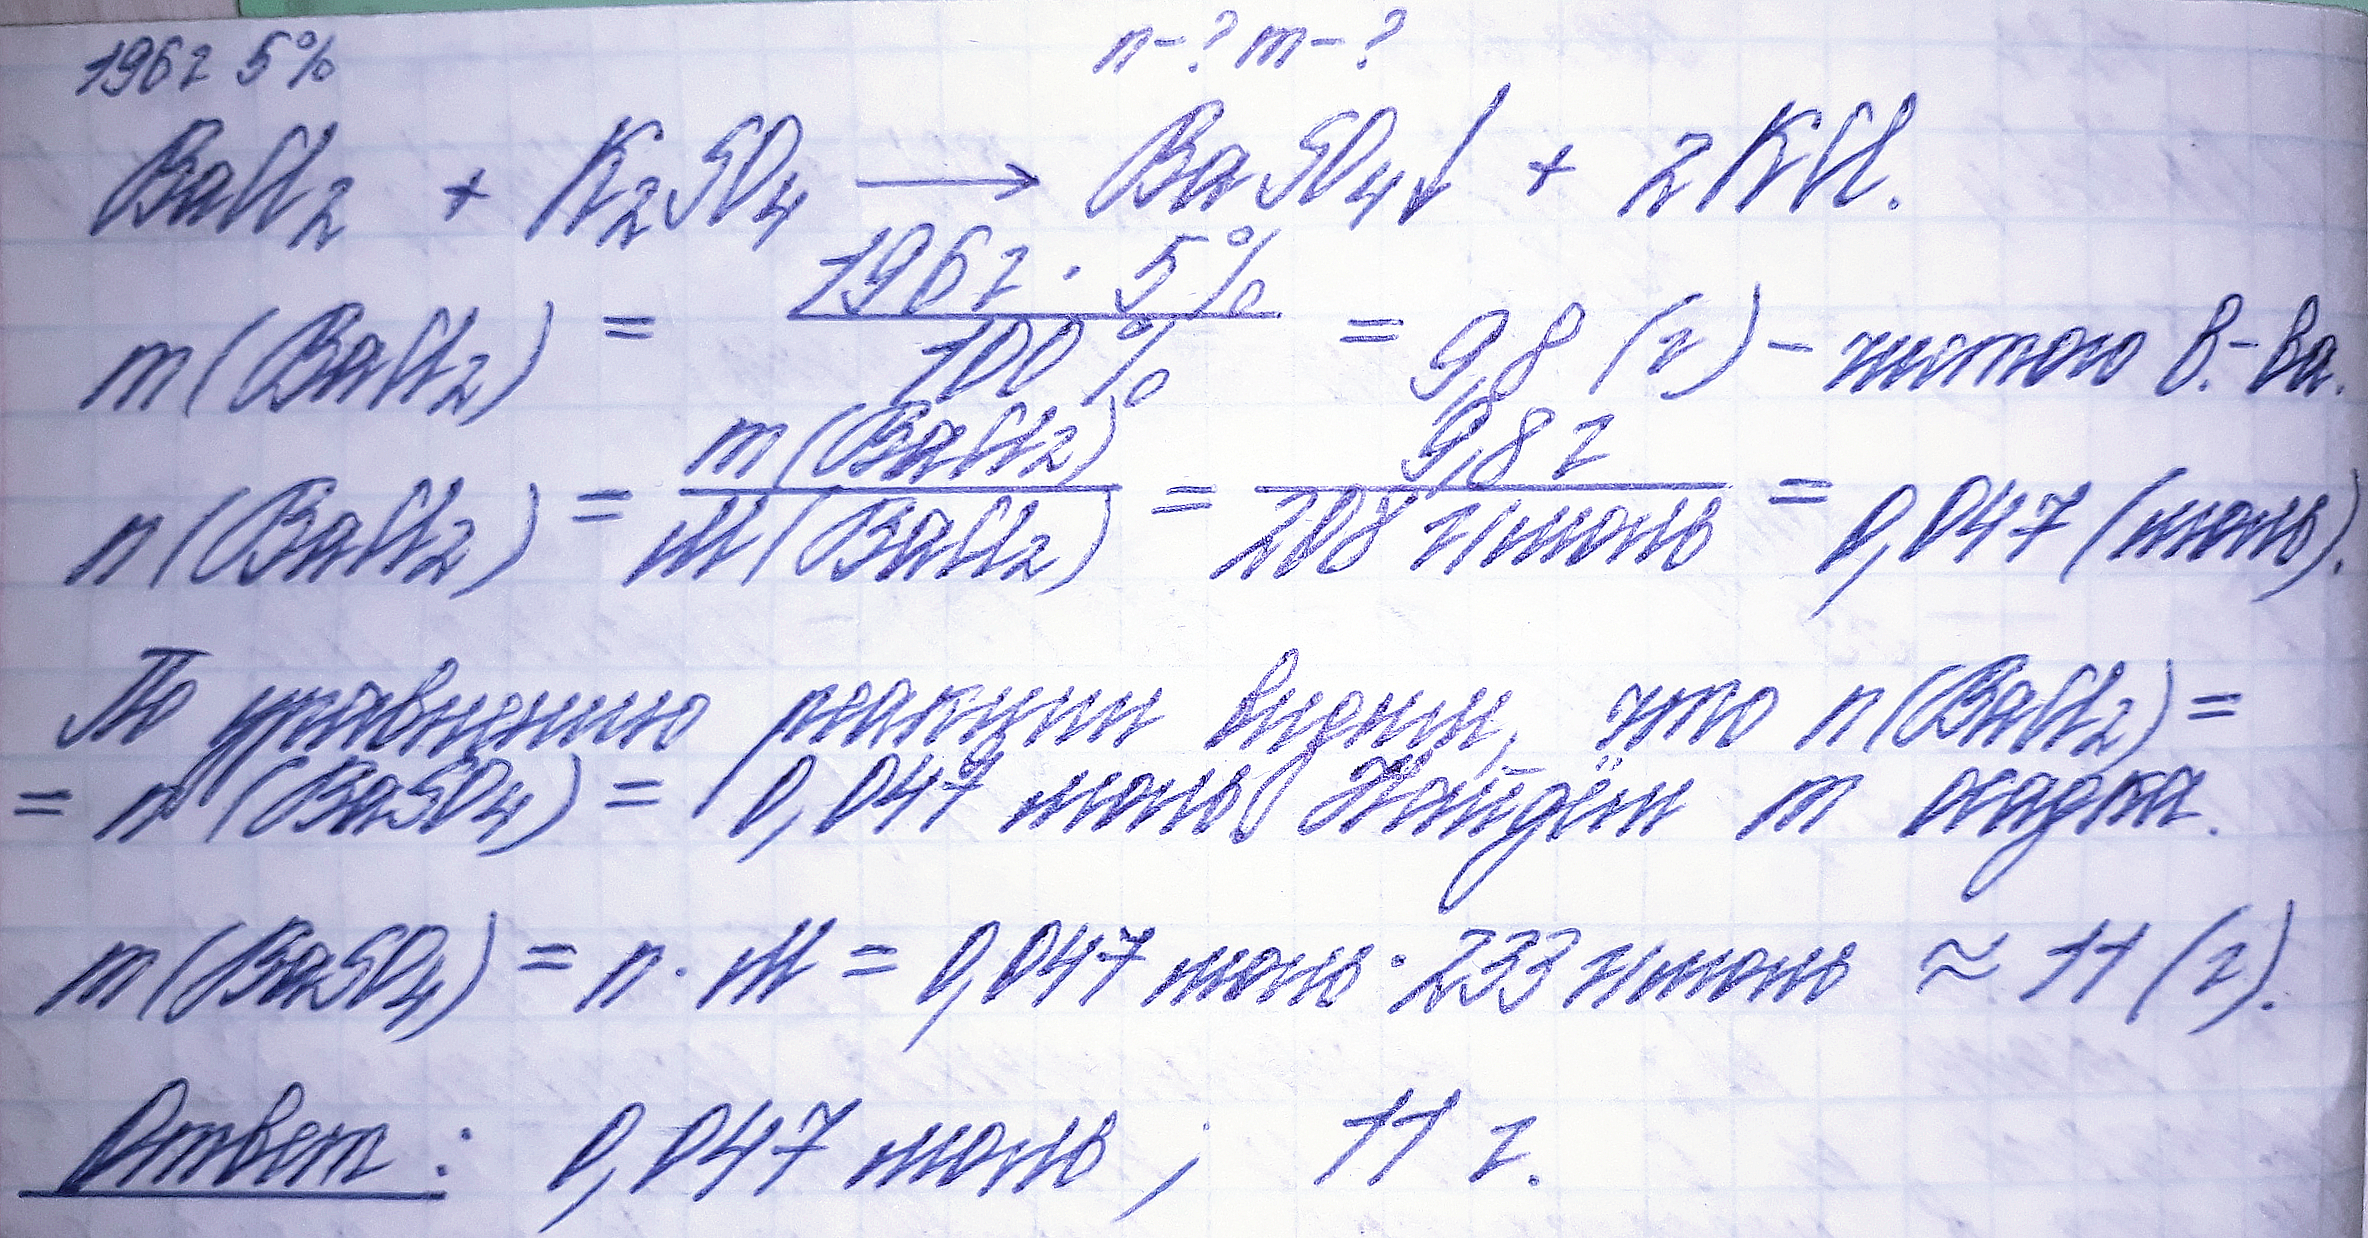 196г 5% n-? m-?
BaCl₂ + K₂SO₄ → BaSO₄↓ + 2KCl.
m(BaCl₂) = 196г · 5% / 100% = 9,8 (г) - чистого в.-ва.
n(BaCl₂) = m(BaCl₂) / M(BaCl₂) = 9,8 г / 208 г/моль = 0,047 (моль).
По уравнению реакции видим, что n(BaCl₂) =
= n(BaSO₄) = 0,047 моль. Найдём m осадка.
m(BaSO₄) = n · M = 0,047 моль · 233 г/моль ≈ 11 (г).
Ответ: 0,047 моль ; 11 г.